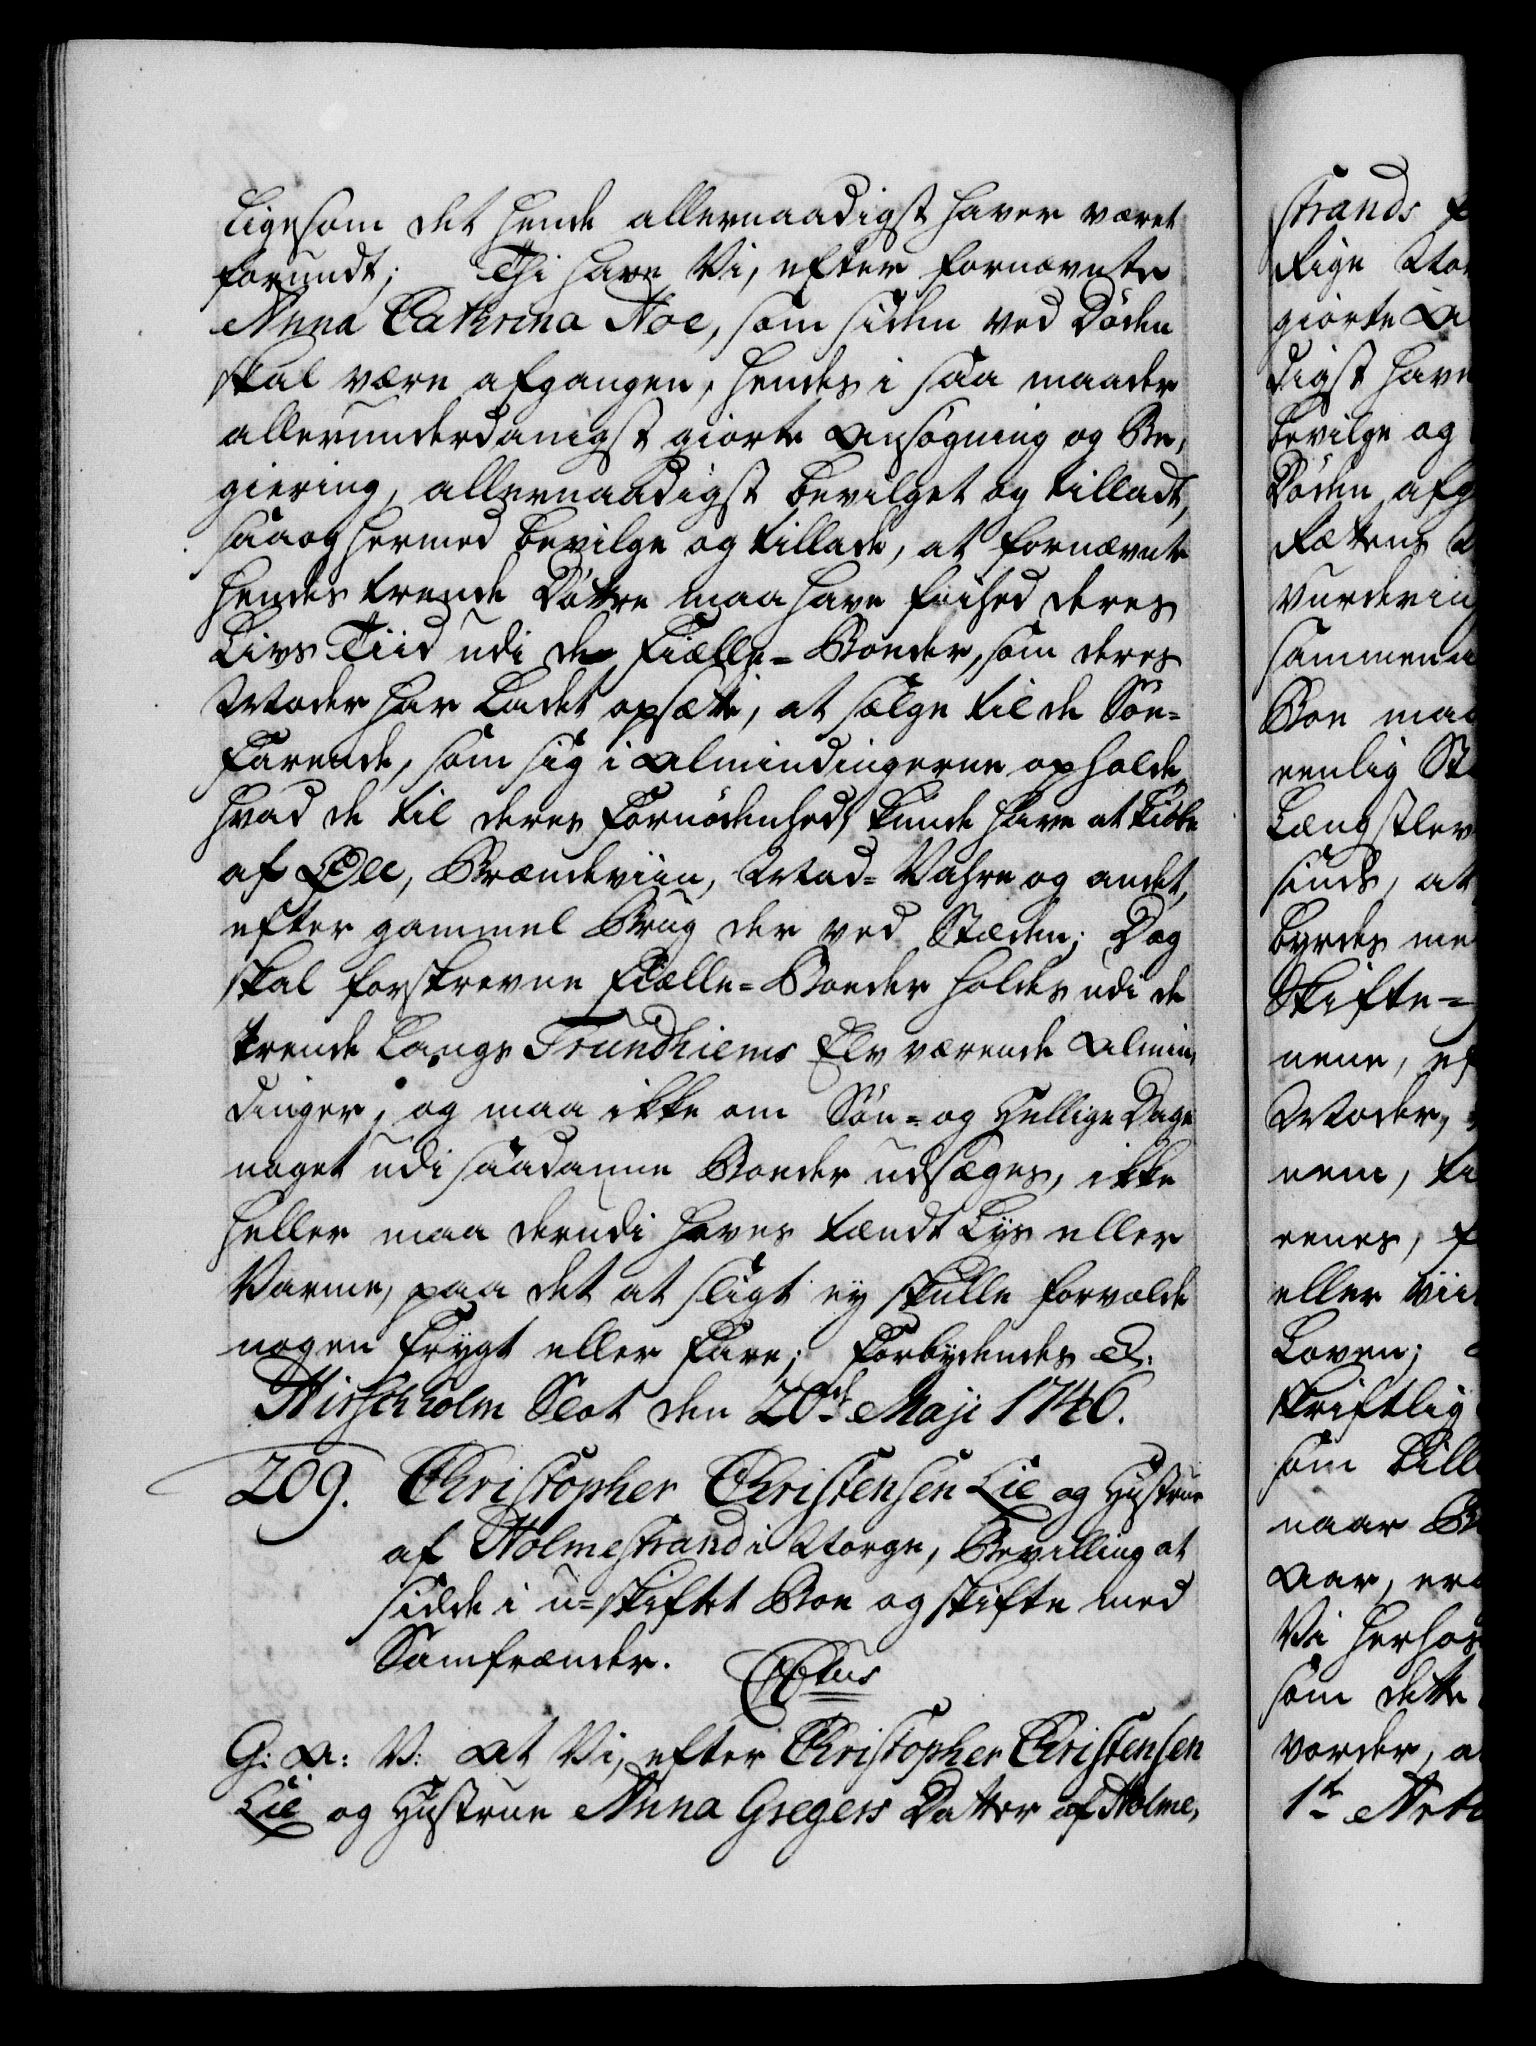 ligesom det hende allernaadigst haver været
forundt; Thi have Vi, efter fornævnte
Anna Cathrina Noe, som siden ved Døden
skal være afgangen, hendes i saa maader
allerunderdanigst giorte Ansøgning og Be,
giering, allernaadigst bevilget og tilladt,
saa og hermed bevilge og tillade, at fornævnte
hendes trende Døttre maa have frihed deres
Livs Tiid udi de Fiælle-Boeder, som deres
Moder har ladet opsætte, at sælge til de Søe-
farende, som sig i Almindingerne opholde,
hvad de til deres Fornødenhed kunde have at kiøbe
af Øll, Brændeviin, Mad-Vahre og andet,
efter gammel Brug der ved Stæden; Dog
skal forskrevne Fiælle-Boeder holdes udi de
trende langs Trundhiems Elv værende Almin,
dinger, og maa ikke om Søn- og Hellige Dage
noget udi saadanne Boeder udsæges, ikke
heller maa derudi haves tændt Lys eller
Varme, paa det at sligt ey skulle forvolde
nogen Frygt eller Fare; Forbydendes &.
Hirschholm Slot den 20de Maji 1746.
209. Christopher Christensen Lie og Hustrue
af Holmestrand i Norge, Bevilling at
sidde i u-skiftet Boe og skifte med
Samfrænder.
G: A: V: At Vi, efter Christopher Christensen
Lie og Hustrue Anna Gregers Datter af Holme,
strands
Rige Nor
giorte A
digst have
bevilge og
Døden afg
Rettens
vurdering
sammen
Boe maa
eenlig St
Længstlev
sinds, at
byrdes me
Skifte-
nene, ef
Moder,
nem, ti
eenes, f
eller vii
Loven;
skriftlig
som till
naar B
Aar, er
Vi herhos
som dette
vorder, a
1te Arti